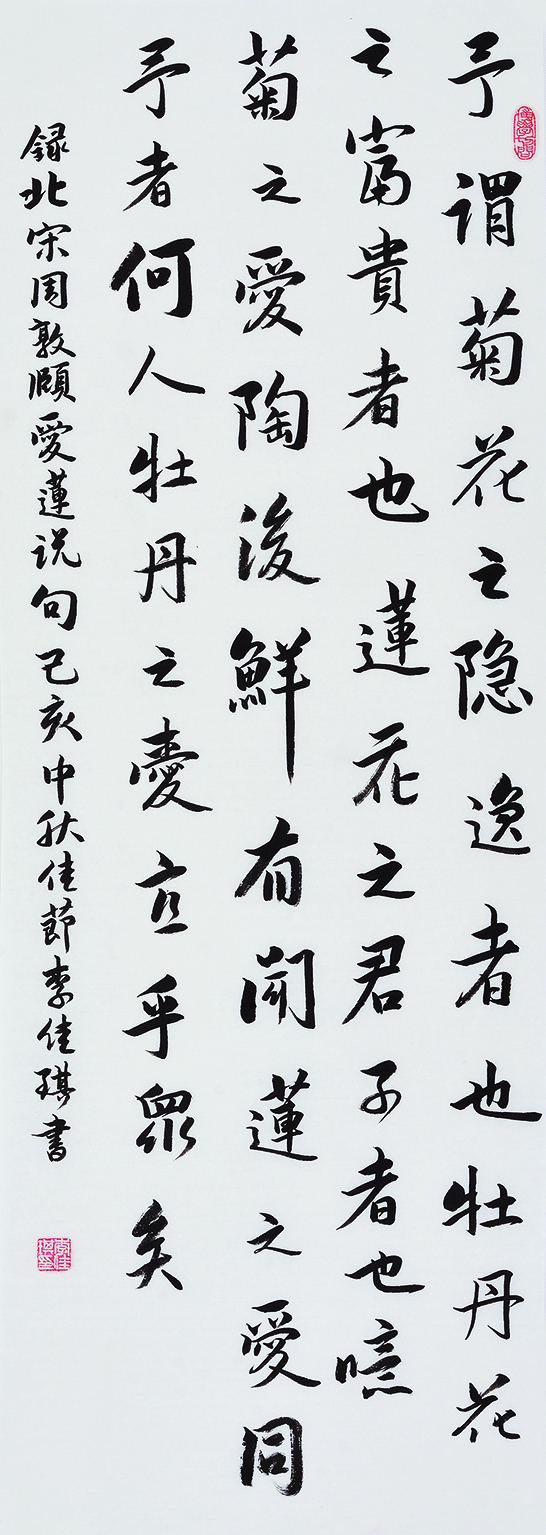 予謂菊花之隐逸者也牡丹花
之富貴者也蓮花之君子者也噫
菊之愛陶後鮮有聞蓮之愛同
予者何人牡丹之愛宜乎眾矣
録北宋周敦頤愛蓮说句己亥中秋佳節李佳琪書